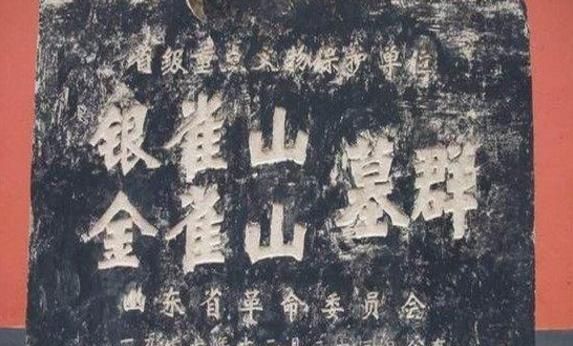 省级重点文物保护单位
银雀山
金雀山
墓群
山东省革命委员会